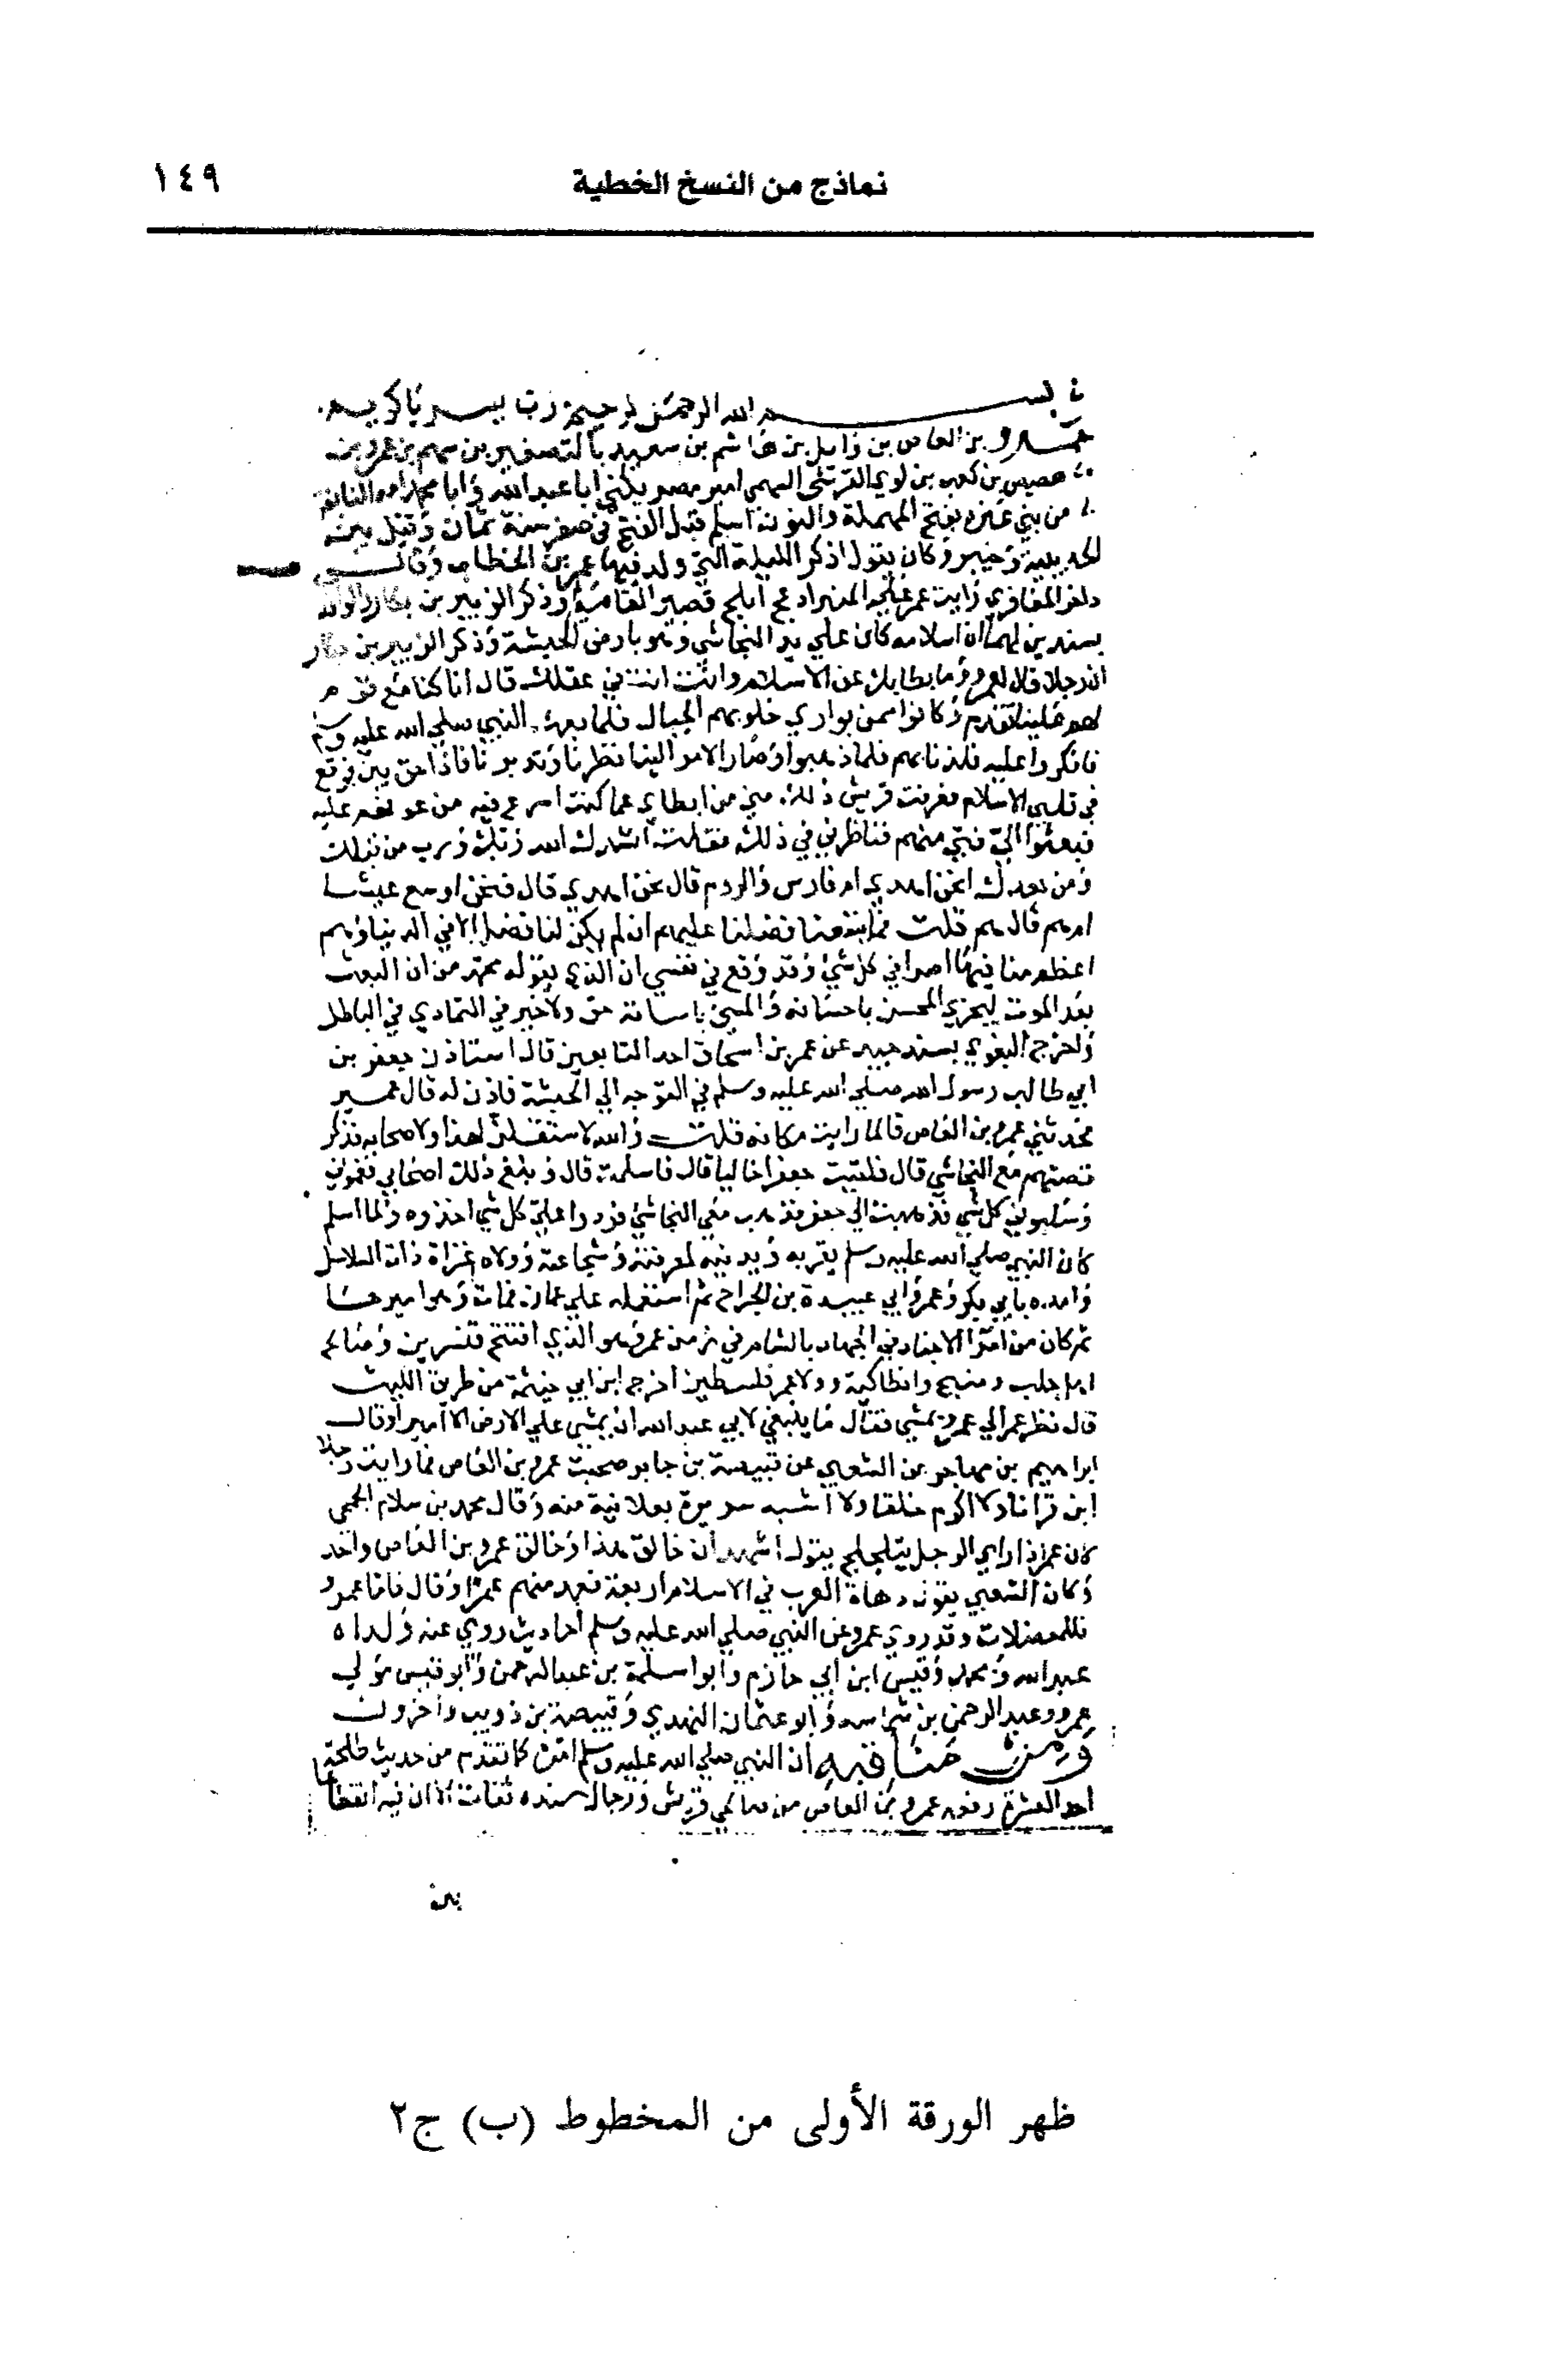 نماذج من النسخ الخطية ١٤٩
بسم الله الرحمن الرحيم رب يسر ياكريم
عمرو بن العاص بن وايل بن هاشم بن سعيد بالتصغير بن سهم بن عمرو بن
هصيص بن كعب بن لوي القرشي السهمي امير مصر يكنى ابا عبدالله وابا محمد امه النابغة
من بني عنزه بفتح المهملة والنون اسلم قبل الفتح في صفر سنة ثمان وقيل بين
الحديبية وخيبر وكان يقول اذكر الليلة التي ولد فيها عمر بن الخطاب وقال
داخر المعافري رايت عمرو علي المنبر ادعج ابلج قصير القامة وذكر الزبير بن بكار والواقدي
بسندين لهما ان اسلامه كان علي يد النجاشي وهو بارض الحبشة وذكر الزبير بن بكار
ان رجلا قال لعمرو ما بطابك عن الاسلام وانت انت في عقلك قال انا كنا مع قوم
لهم علينا تقدم وكانوا ممن يواري حلومهم الجبال فلما بعث النبي صلي الله عليه وسلم
فانكروا عليه فلذنا بهم فلما ذهبوا وصار الامر الينا نظرنا وتدبرنا فاذا حق بين فوقع
في قلبي الاسلام فعرفت قريش ذلك مني من ابطاي عما كنت اسرع فيه من عونهم عليه
فبعثوا الي فتي منهم فناظرني في ذلك فقلت انشدك الله ربك ورب من قبلك
ومن بعدك انحن اهدي ام فارس والروم قال نحن اهدي قال فنحن اوسع عيشا
ام هم قال هم قلت فما ينفعنا فضلنا عليهم ان لم يكن لنا فضل الا في الدنيا وهم
اعظم منا فيها امرا في كل شي وقد وقع في نفسي ان الذي يقوله محمد من ان البعث
بعد الموت ليجزي المحسن باحسانه والمسي باساته حق ولاخير في التمادي في الباطل
واخرج البغوي بسند جيد عن عمر بن اسحاق احد التابعين قال استاذن جعفر بن
ابي طالب رسول الله صلي الله عليه وسلم في التوجه الي الحبشة فاذن له قال عمير
فحدثني عمرو بن العاص قال لما رايت مكانه قلت والله لاستقلن لهذا ولاصحابه فذكر
قصتهم مع النجاشي قال فلقيت جعفرا خاليا قال فاسلمت قال وبلغ ذلك اصحابي فغموني
وسلبوني كل شي فذهبت الي جعفر فذهب معي النجاشي فردوا علي كل شي اخذوه ولما اسلم
كان النبي صلي الله عليه وسلم يقربه ويدنيه لمعرفته وشجاعته وولاه غزاة ذات السلاسل
وامده بابي بكر وعمر وابي عبيدة بن الجراح ثم استعمله علي عمان فمات وهو اميرها
ثم كان من امرا الاجناد في الجهاد بالشام في زمن عمر وهو الذي افتتح قنسرين وصالح
اهل حلب ومنبج وانطاكية وولاه عمر فلسطين اخرج ابن ابي خيثمة من طريق الليث
قال نظر عمر الي عمرو يمشي فقال ما ينبغي لابي عبد الله ان يمشي علي الارض الا اميرا وقال
ابراهيم بن مهاجر عن الشعبي عن قبيصة بن جابر صحبت عمرو بن العاص فما رايت رجلا
ابين قرانا ولا اكرم خلقا ولا اشبه سريرة بعلانية منه وقال محمد بن سلام الجمحي
كان عمر اذا راي الرجل يتلجلج يقول اشهد ان خالق هذا وخالق عمرو بن العاص واحد
وكان الشعبي يقول دهاة العرب في الاسلام اربعة فعد منهم عمرا وقال فاما عمرو
فللمعضلات وقد روي عمرو عن النبي صلي الله عليه وسلم احاديث روي عنه ولداه
عبد الله ومحمد وقيس ابن ابي حازم وابوا سلمة بن عبد الرحمن وابو قيس مولي
عمرو وعبد الرحمن بن شماسه وابو عثمان النهدي وقبيصة بن ذويب واخرون
ومن مناقبه ان النبي صلي الله عليه وسلم كما تقدم من حديث طلحة
احد العشرة رفعه عمرو بن العاص من صالحي قريش ورجال سنده ثقات الا ان فيه انقطاعا
بين
ظهر الورقة الأولى من المخطوط (ب) ج٢